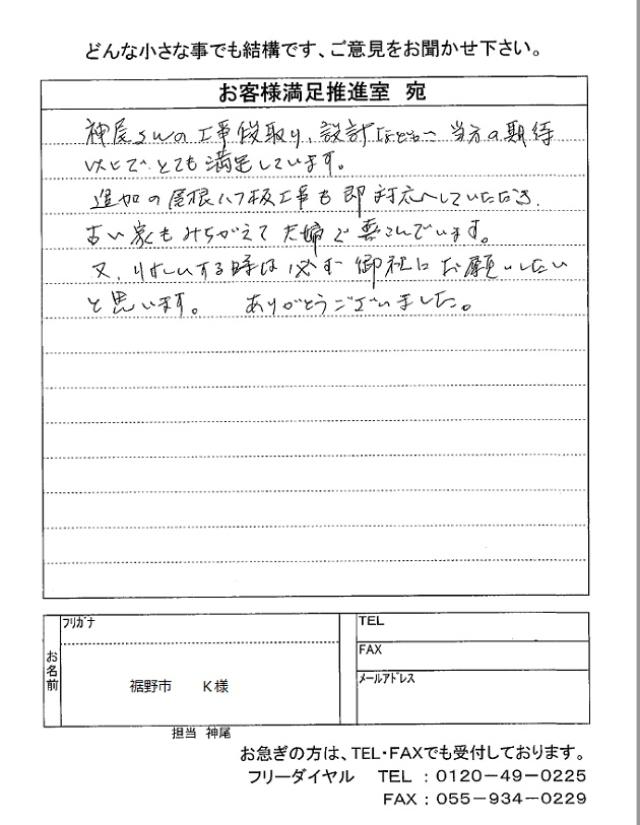 どんな小さな事でも結構です、ご意見をお聞かせ下さい。
お客様満足推進室 宛
神尾さんの工事段取り、設計なども 当方の期待
以上で、とても満足しています。
追加の屋根ハフ板工事も即対応していただき、
古い家もみちがえて夫婦で喜こんでいます。
又、りほーむする時は必ず御社にお願いしたい
と思います。 ありがとうございました。
フリガナ
お名前
裾野市 K様
TEL
FAX
メールアドレス
担当 神尾
お急ぎの方は、TEL・FAXでも受付しております。
フリーダイヤル TEL：0120－49－0225
FAX：055－934－0229